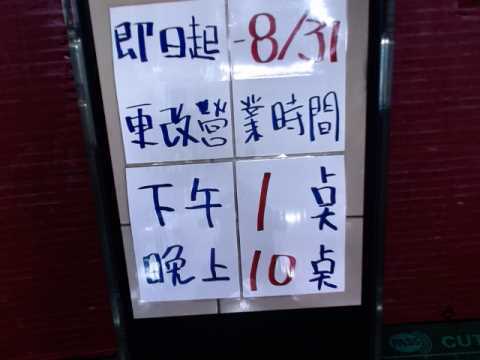 即日起-8/31
更改營業時間
下午1點
晚上10點
CUT